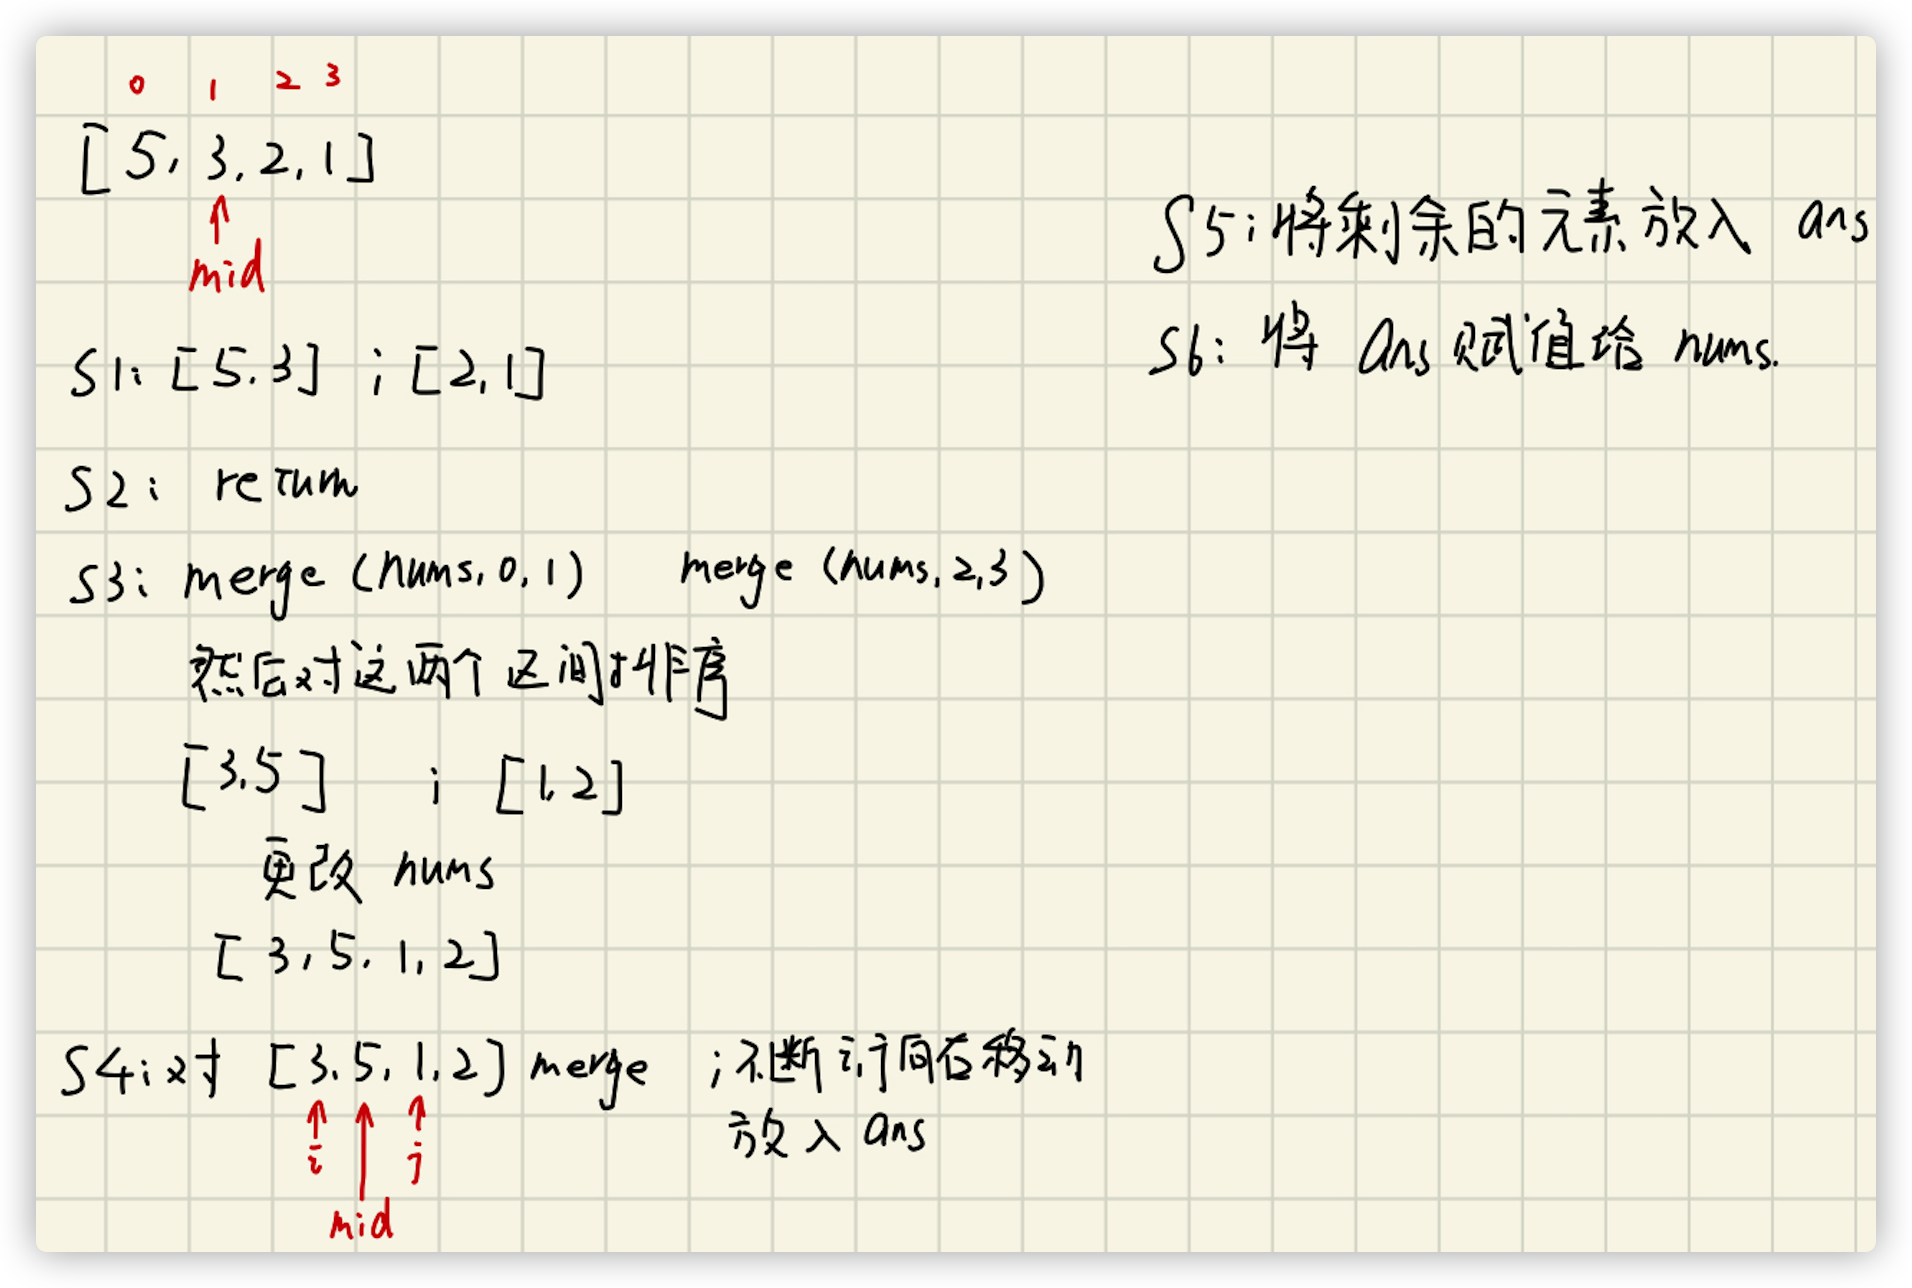 0 1 2 3
[5, 3, 2, 1]
mid
S1: [5.3] ; [2,1]
S2: return
S3: merge (nums, 0, 1) merge (nums, 2,3)
然后对这两个区间排序
[3.5] ; [1,2]
更改 nums
[3, 5, 1, 2]
S4: 对 [3.5,1,2] merge ; 不断 i, j 向右移动
放入 ans
i j
mid
S5: 将剩余的元素放入 ans
S6: 将 ans 赋值给 nums.